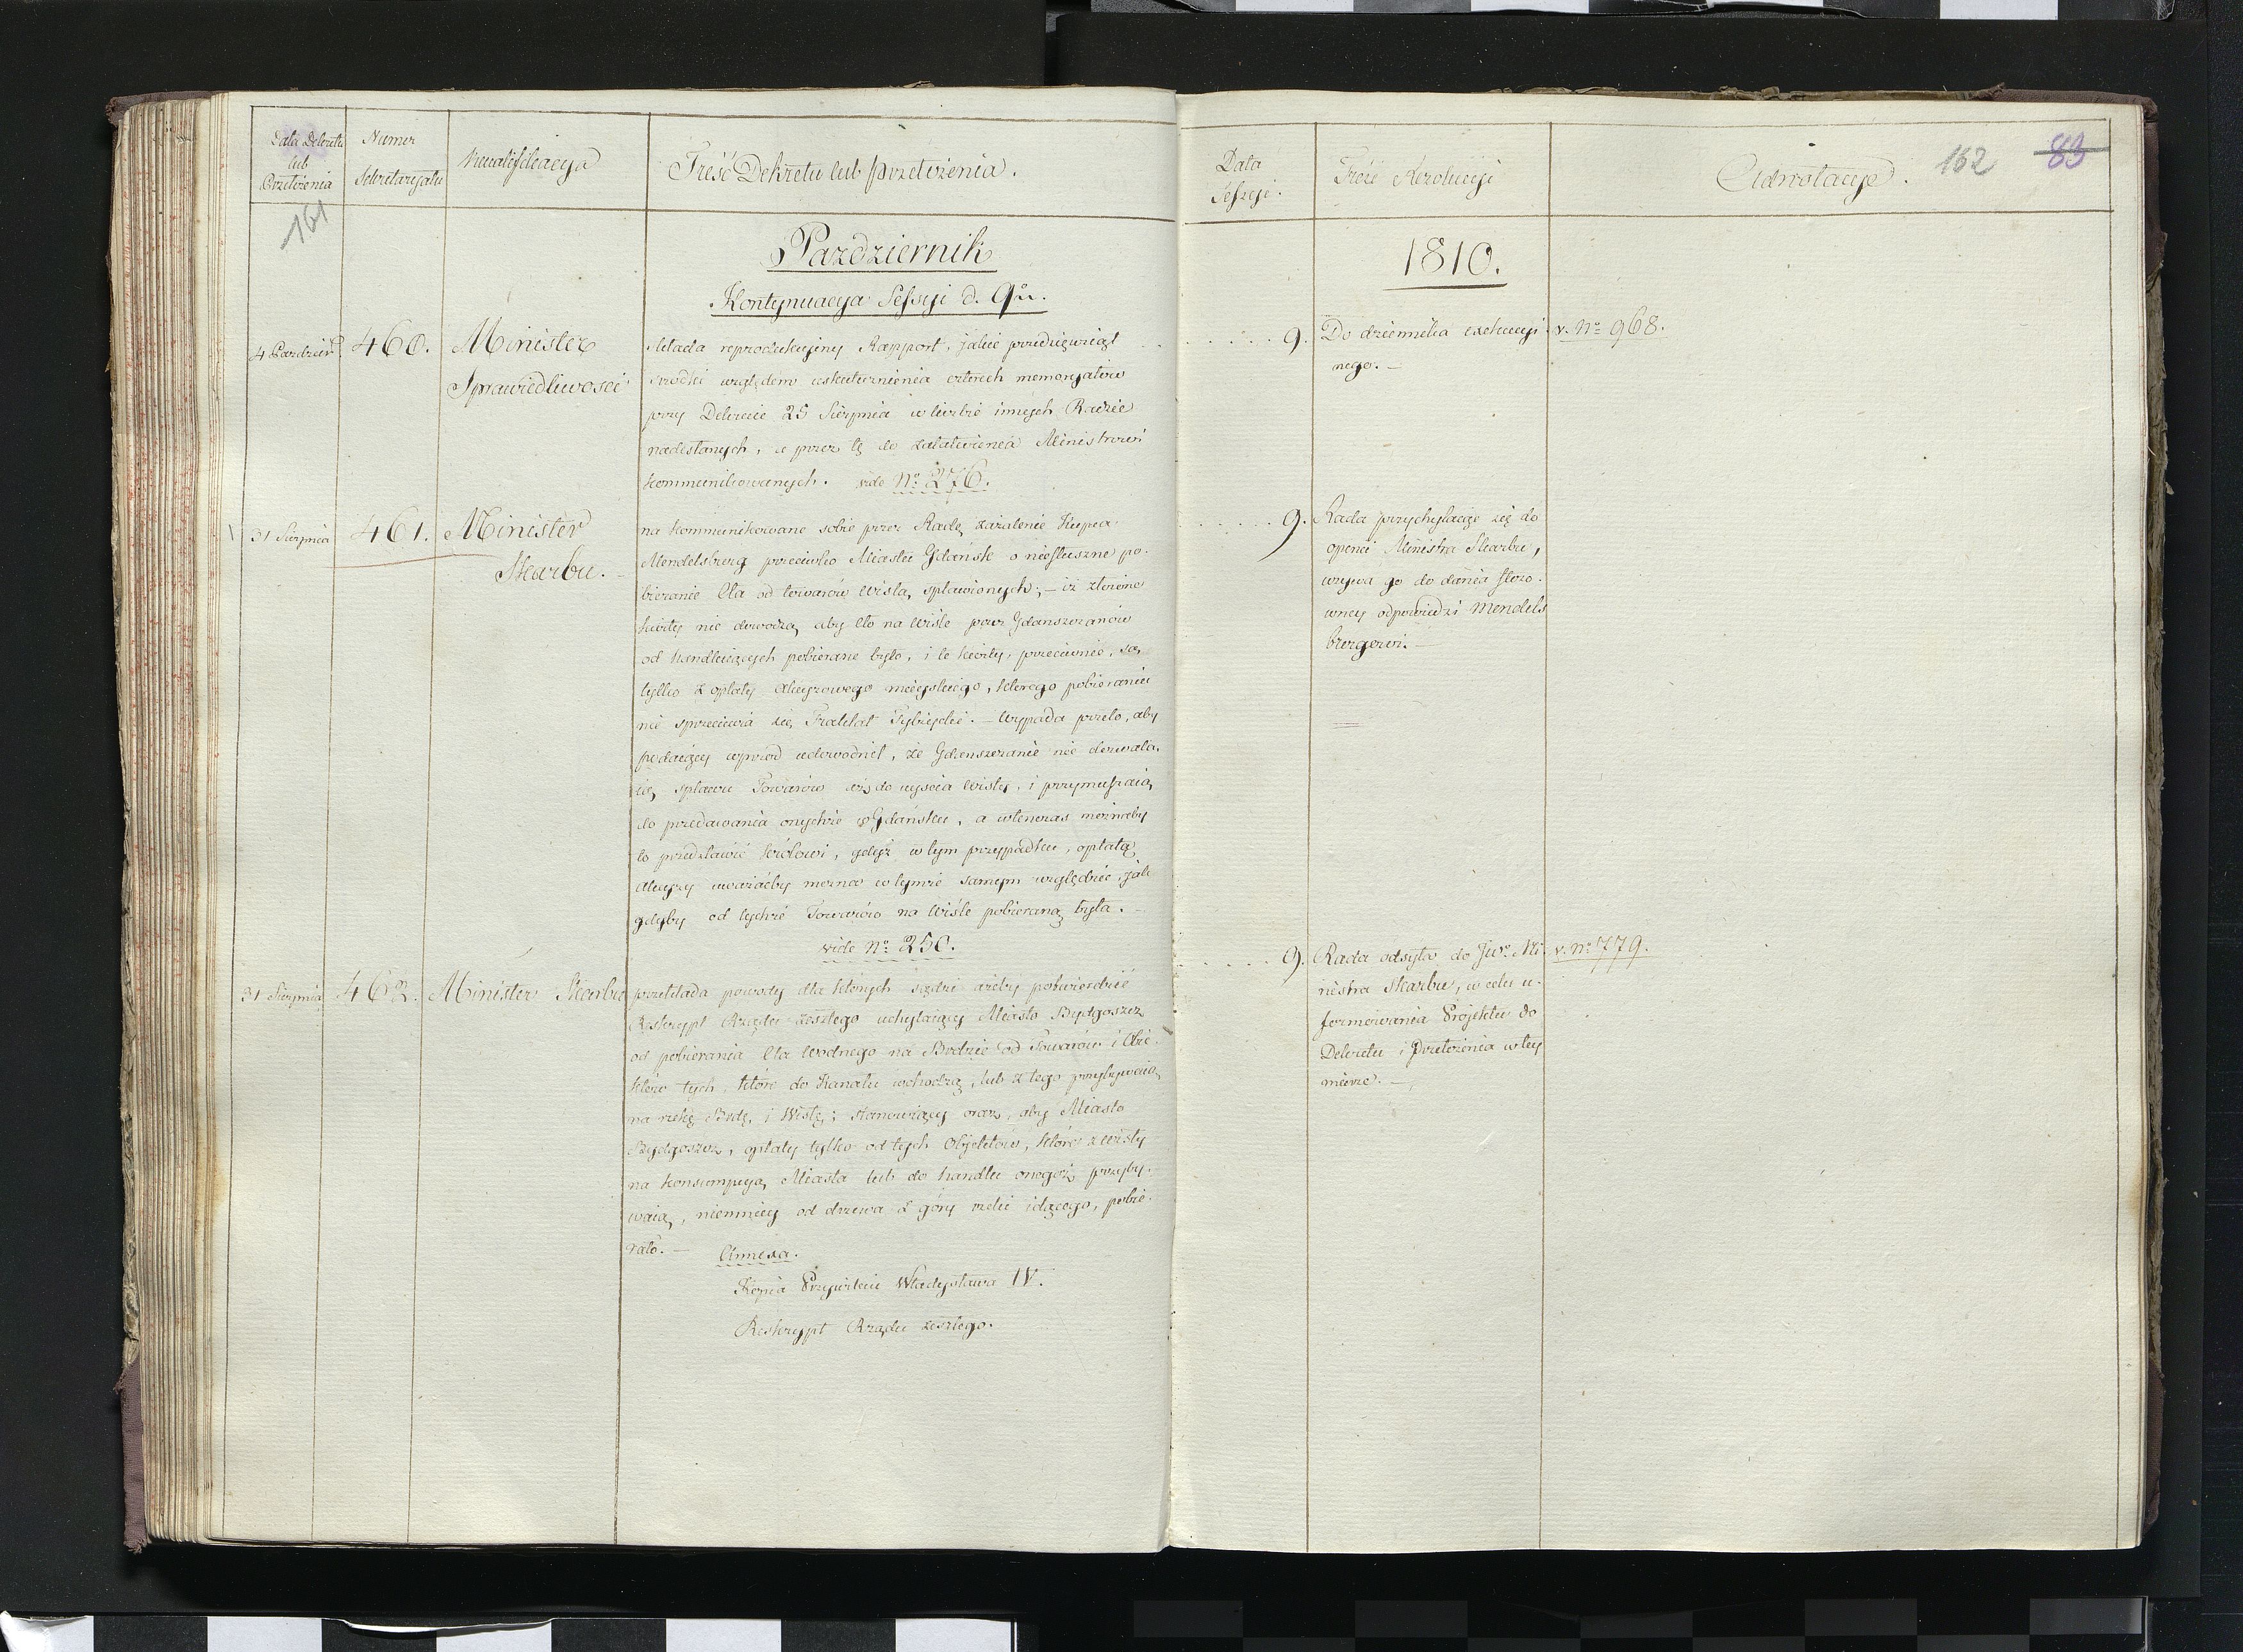 Data Dekretu
lub
Przełożenia
Numer
Sekretaryatu
Kwalifikacya
Treść Dekretu lub przełożenia.
161
Pazdziernik
Kontynuacya Sessyi d. 9ª
4 Pazdzier. 460. Minister
Sprawiedliwosci
składa reprodukcyiny Rapport, jakie przedsięwziął
srodki względem uskutecznienia czterech memoryałów
przy Dekrecie 25 Sierpnia w liczbie innych Radzie
nadesłanych, a przez tę do załatwienia Ministrowi
kommunikowanych. vide No 276.
31 Sierpnia 461. Minister
Skarbu.
na kommunikowane sobie przez Radę zażalenie Kupca
Mendelsburg przeciwko Miastu Gdańsk o niesłuszne po-
bieranie Cła od towarów Wisłą spławionych; – iż złożone
kwity nie dowodzą aby Cło na Wiśle przez Gdanszczanów
od handluiących pobierane było, i te kwity, przeciwnie, są
tylko z opłaty akcyzowego mieyskiego, którego pobieraniu
nie sprzeciwia się Traktat Tylżycki. – Wypada przeto, aby
podaiący wprzód udowodnił, że Gdanszczanie nie dozwala-
ią spławu Towarów aż do uyscia Wisły, i przymuszaią
do przedawania onychże w Gdańsku, a wtenczas możnaby
to przedstawić Królowi, gdyż w tym przypadku, opłatą
akcyzy uważaćby można w tymże samym względzie, jak
gdyby od tychże Towarów na Wiśle pobieraną była. –
vide No 250.
31 Sierpnia 462. Minister Skarbu
przekłada powody dla których sądzi ażeby potwierdzić
Reskrypt Rządu zeszłego uchylaiący Miasto Bydgoszcz
od pobierania Cła wodnego na Brdzie od Towarów i Obie-
któw tych, które do Kanału wchodzą, lub z tego przybywaią
na rzekę Brdę, i Wisłę; stanowiący oraz, aby Miasto
Bydgoszcz, opłaty tylko od tych Objektów, które z Wisły
na konsumpcyą Miasta lub do handlu onegoż przyby-
waią, niemniey od drzewa z góry rzeki idącego, pobie-
rało. – Annexa.
Kopia Przywileiu Władysława IV.
Reskrypt Rządu zeszłego.
Data
Sessyi.
Treść Rezolucyi
Adnotacye.
162 83
1810.
9. Do dziennika exekucyi-
nego. –
v. No 968.
9. Rada przychylaiąc się do
opinii Ministra Skarbu,
wzywa go do dania stoso-
wney odpowiedzi Mendels
burgowi. –
9. Rada odsyła do Jwo Mi-
nistra Skarbu, w celu u-
formowania Projektu do
Dekretu i Przełożenia w tey
mierze. –
v. No 779.